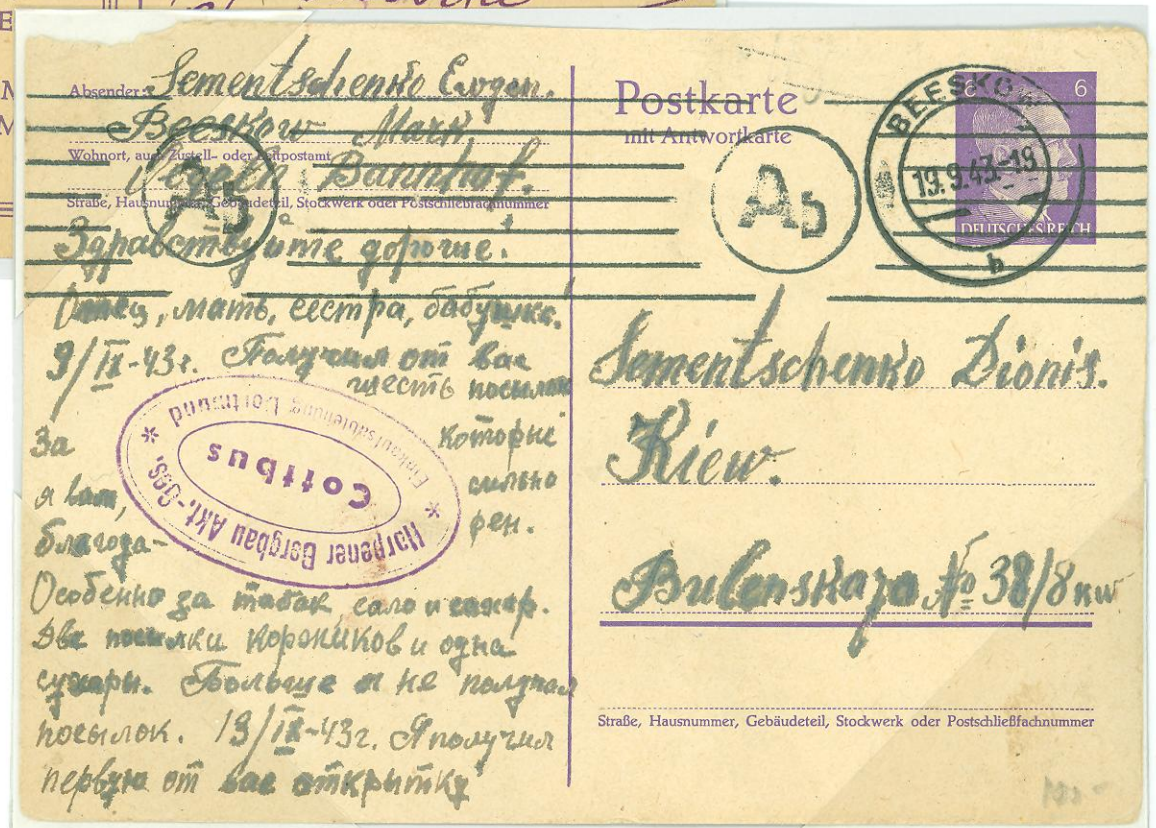 Absender: Sementschenko Ewgen.
Beeskow Mark,
Wohnort, auch Zustell- oder Leitpostamt
Bannhof.
Straße, Hausnummer, Gebäudeteil, Stockwerk oder Postschließfachnummer
Здравствуйте дорогие.
Отец, мать, сестра, бабушка.
9/IX-43г. Получил от вас
шесть посылок
За которые
я вам, сильно
благода- рен.
Особенно за табак сало и сахар.
Две посылки коржиков и одна
сухари. Больше я не получал
посылок. 13/IX-43г. Я получил
первую от вас открытку
Harpener Bergbau Akt.-Ges.
Einkaufsabteilung Dortmund
Cottbus
Postkarte
mit Antwortkarte
Ab
Ab
BEESKOW
19.9.43.-18
b
6
DEUTSCHES REICH
Sementschenko Dionis.
Kiew.
Bulenskaja № 38/8 kw
Straße, Hausnummer, Gebäudeteil, Stockwerk oder Postschließfachnummer